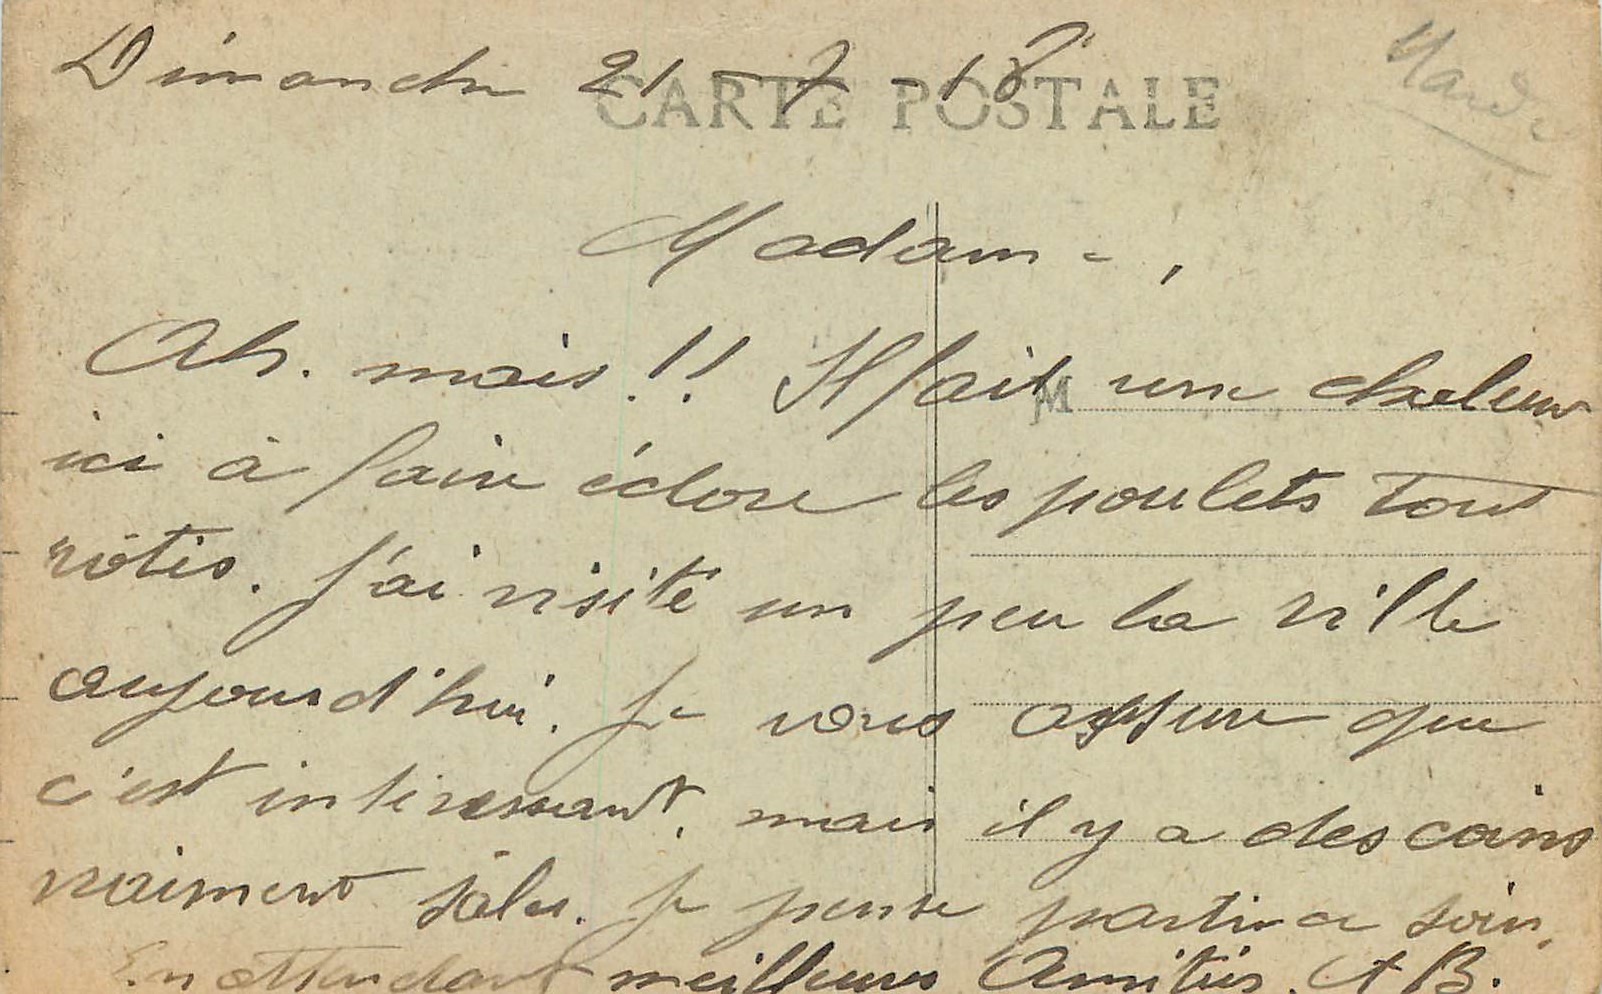 Dimanche 21-7-18
CARTE POSTALE
Madame,
Ah. mais!! Il fait une chaleur
M
ici à faire éclore les poulets tout
rôtis. J'ai visité un peu la ville
aujourd'hui. Je vous assure que
c'est intéressant, mais il y a des coins
vraiment sâles. Je pense partir ce soir.
En attendant meilleures Amitiés. A B.